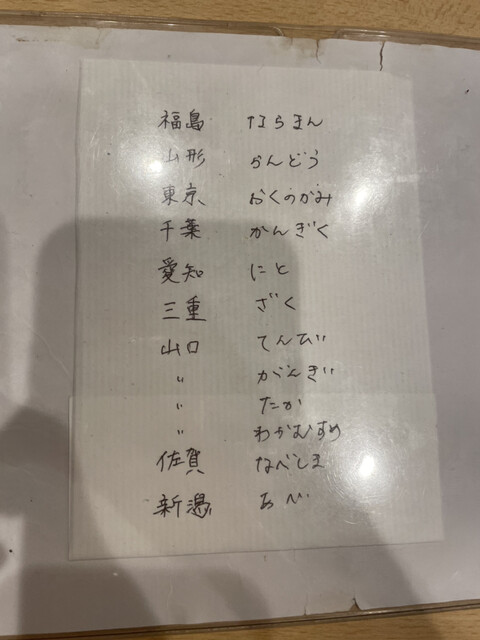 福島 ならまん
山形 らんどう
東京 おくのかみ
千葉 かんぎく
愛知 にと
三重 ざく
山口 てんび
〃 がんぎ
〃 たか
〃 わかむすめ
佐賀 なべしま
新潟 あべ